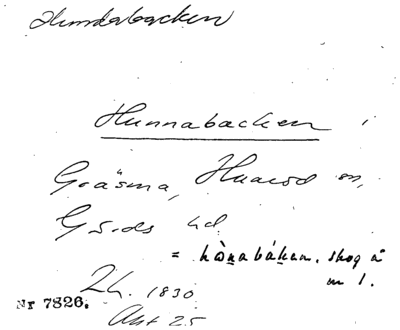 Hundabacken
Hunnabacken
Gräsma, Huaröd sn,
Gärds hd
= hònabáken. skog å
m 1.
Lh. 1830
Nr 7826.
Akt 25